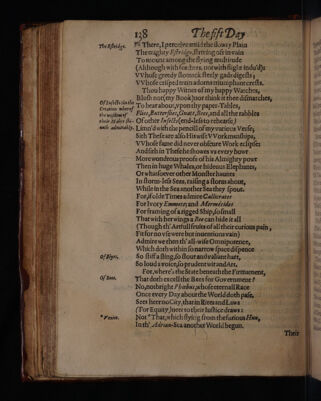 138 The fift Day
The Estridge. There, I perceive amid the slowry Plain
The mighty Estridge, striving oft in vain
To mount among the flying multitude
(Although with feathers, not with flight indu'd):
VVhose greedy stomack steely gads digests;
VVhose crisped train adorns triumphant crests.
Thou happy Witnes of my happy Watches,
Blush not (my Book) nor think it thee dismatches,
Of Insects: in the To bear about upon thy paper-Tables,
Creation wherof Flies, Butterflies, Gnats, Bees, and all the rabbles
the wisdom of Of other Insects (end-lesse to rehearse)
their Maker shi- Limn'd with the pencill of my various Verse,
neth admirably. Sith These are also His wise VVorkmanships,
VVhose fame did never obscure Work eclipse:
And sith in These he showes us every hour
More wondrous proofs of his Almighty powr
Then in huge Whales, or hideous Elephants,
Or whatsoever other Monster haunts
In storm-less Seas, raising a storm about,
While in the Sea another Sea they spout.
For, if olde Times admire Callicrates
For Ivory Emmets; and Mermecides
For framing of a rigged Ship, so small
That with her wings a Bee can hide it all
(Though th' Artfull fruits of all their curious pain,
Fit for no vse were but inuentions vain)
Admire we then th' all-wise Omnipotence,
Which doth within so narrow space dispence
Of Flyes. So stiff a sting, so stout and valiant hart,
So loud a voice, so prudent wit and Art.
For, where's the State beneath the Firmament,
Of Bees. That doth excell the Bees for Government?
No, no: bright Phœbus, whose eternall Race
Once every Day about the World doth pase,
Sees heer no City, that in Rites and Laws
(For Equity) neer to their Iustice draws:
* Venice. Not * That, which flying from the furious Hun,
In th' Adrian-Sea another World begun.
Their